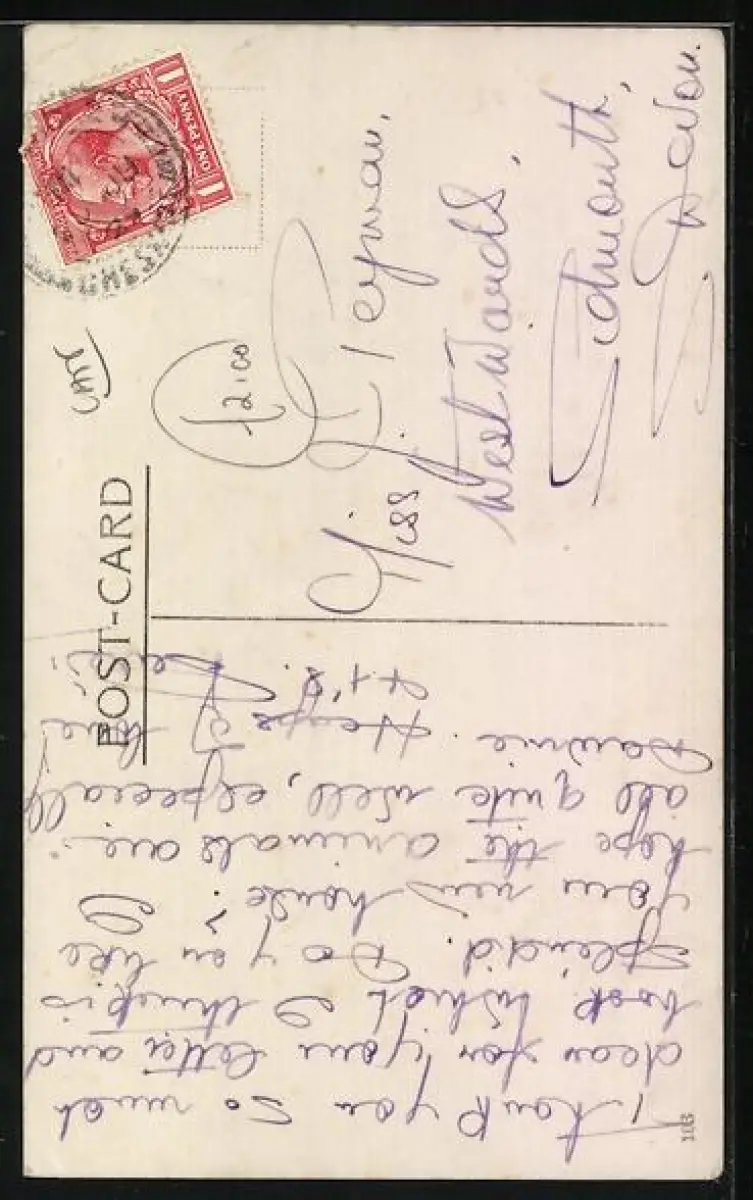 POST-CARD
ONE PENNY
£2.00
Miss
Peyman,
West Wards,
Sidmouth,
Devon.
Thank you so much
dear for your letter and
book which I think is
splendid. Do you like
your new house. I
hope the animals are
all quite well, especially
Heaps of love
18B